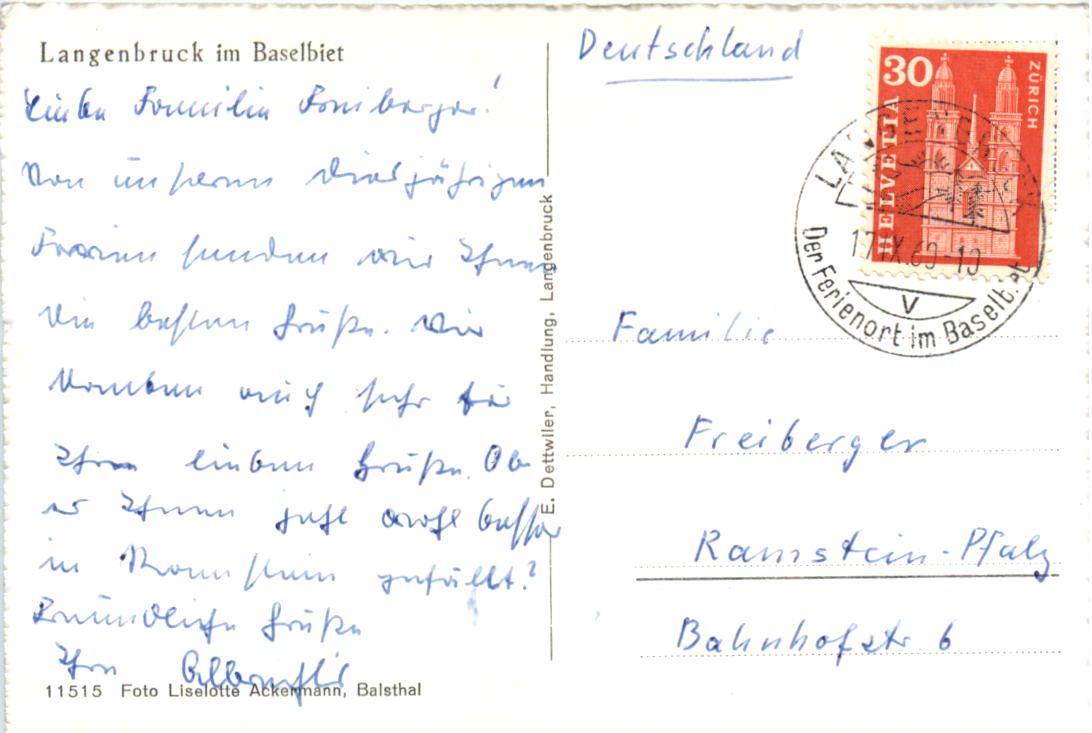 Langenbruck im Baselbiet
Liebe Familie Freiberger!
Von unserem diesjährigen
Ferien senden wir Ihnen
die besten Grüße. Wir
danken auch sehr für
Ihre lieben Grüße. Ob
es Ihnen jetzt wohl besser
in Ramstein gefällt?
Freundliche Grüße
Ihre
11515 Foto Liselotte Ackermann, Balsthal
E. Dettwiler, Handlung, Langenbruck
Deutschland
30
HELVETIA
ZÜRICH
LANGENBRUCK
17.IX.60-10
V
Der Ferienort im Baselbiet
Familie
Freiberger
Ramstein-Pfalz
Bahnhofstr 6